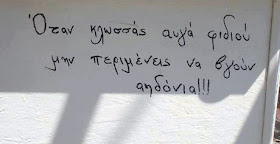 Όταν κλωσσάς αυγά φιδιού
μην περιμένεις να βγούν
αηδόνια!!!